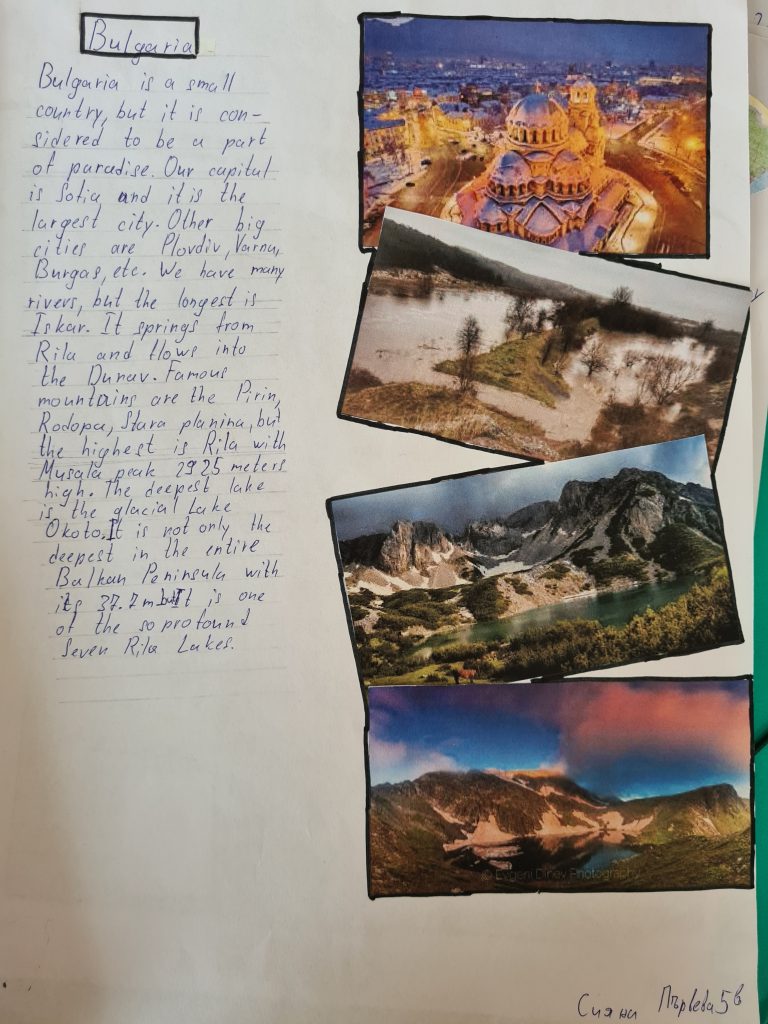 Bulgaria
Bulgaria is a small
country, but it is con-
sidered to be a part
of paradise. Our capital
is Sofia and it is the
largest city. Other big
cities are Plovdiv, Varna,
Burgas, etc. We have many
rivers, but the longest is
Iskar. It springs from
Rila and flows into
the Dunav. Famous
mountains are the Pirin,
Rodopa, Stara planina, but
the highest is Rila with
Musala peak 2925 meters
high. The deepest lake
is the glacial Lake
Okoto. It is not only the
deepest in the entire
Balkan Peninsula with
its 37.7 m but It is one
of the so profound
Seven Rila Lakes.
© Evgeni Dinev Photography
Сияни Първева 5в